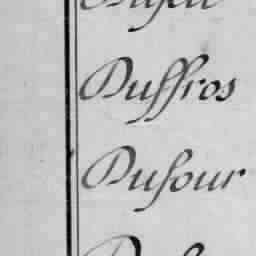 Duffros
Dufour